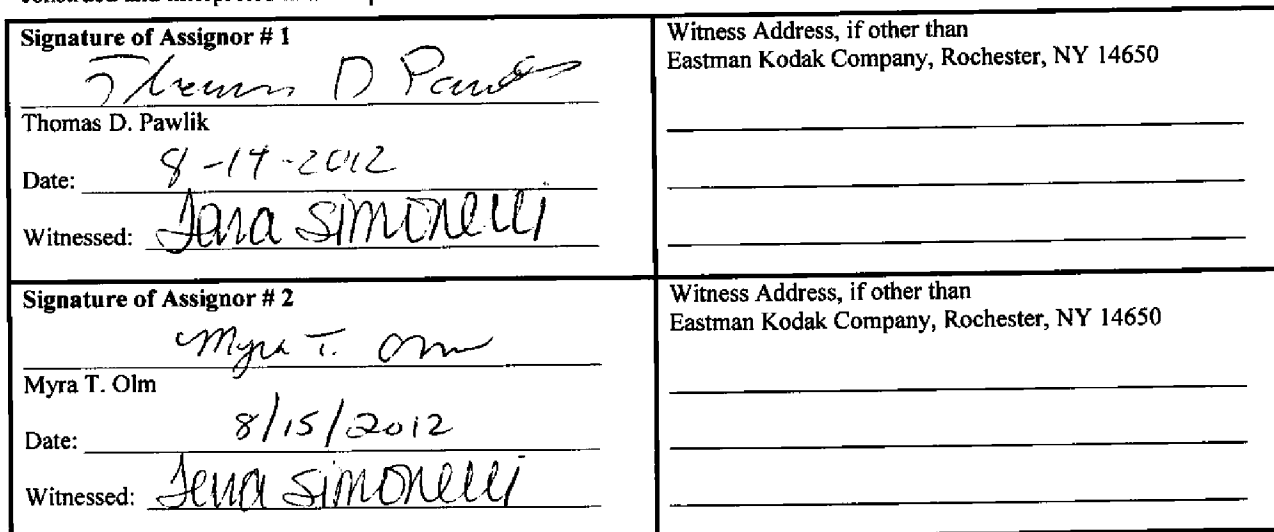 Signature of Assignor # 1
Thomas D Pawlik
Thomas D. Pawlik
Date: 8-14-2012
Witnessed: Simonelli
Witness Address, if other than
Eastman Kodak Company, Rochester, NY 14650
Signature of Assignor # 2
Myra T. Olm
Myra T. Olm
Date: 8/15/2012
Witnessed: Simonelli
Witness Address, if other than
Eastman Kodak Company, Rochester, NY 14650